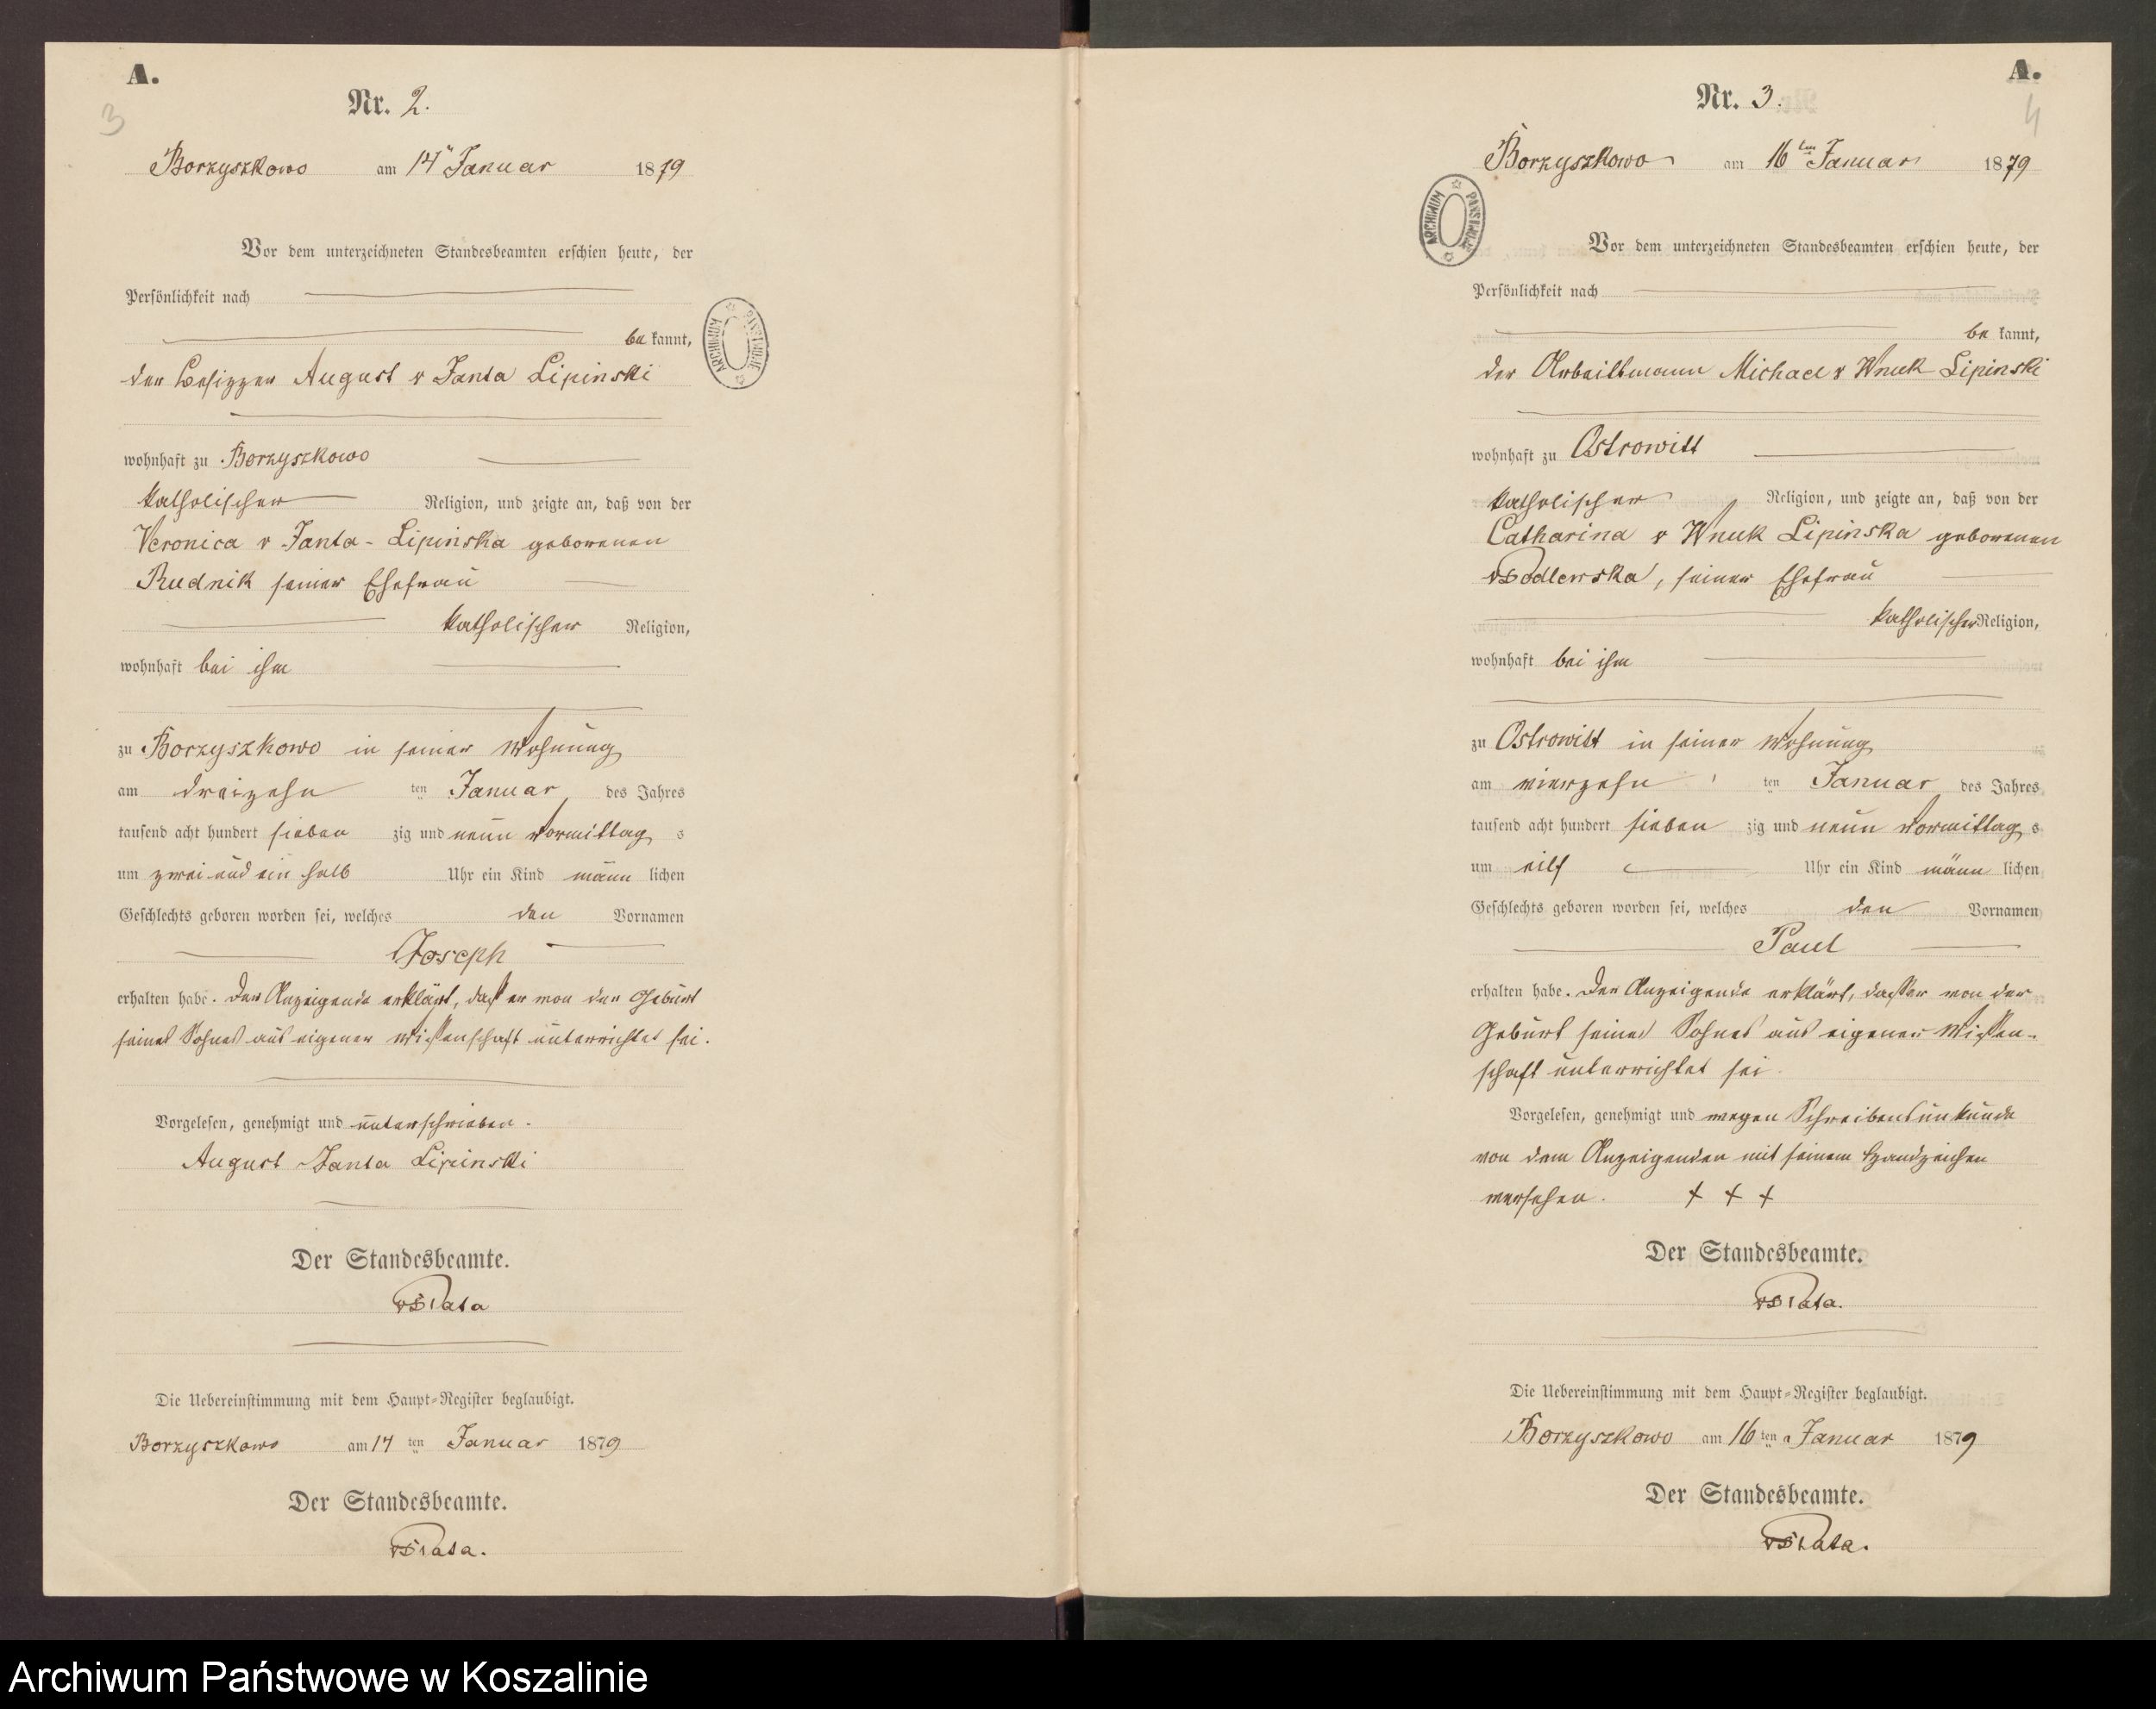 A.
3
Nr. 2.
Borzyszkowo am 14" Januar 1879
Vor dem unterzeichneten Standesbeamten erschien heute, der
Persönlichkeit nach
be kannt,
der Besitzer August v Janta Lipinski
wohnhaft zu Borzyszkowo
katholischer Religion, und zeigte an, daß von der
Veronica v Janta-Lipinska geborenen
Rudnik seiner Ehefrau
katholischer Religion,
wohnhaft bei ihm
zu Borzyszkowo in seiner Wohnung
am dreizehn ten Januar des Jahres
tausend acht hundert sieben zig und neun Vormittag s
um zwei und ein halb Uhr ein Kind männ lichen
Geschlechts geboren worden sei, welches den Vornamen
Joseph
erhalten habe. Der Anzeigende erklärt, daß er von der Geburt
seines Sohnes aus eigener Wissenschaft unterrichtet sei.
Vorgelesen, genehmigt und unterschrieben.
August Janta Lipinski
Der Standesbeamte.
Die Uebereinstimmung mit dem Haupt-Register beglaubigt.
Borzyszkowo am 14 ten Januar 1879
Der Standesbeamte.
ARCHIWUM PAŃSTWOWE
A.
4
Nr. 3.
Borzyszkowo am 16ten Januar 1879
Vor dem unterzeichneten Standesbeamten erschien heute, der
Persönlichkeit nach
be kannt,
der Arbeitsmann Michael v Wnuk Lipinski
wohnhaft zu Ostrowitt
katholischer Religion, und zeigte an, daß von der
Catharina v Wnuk Lipinska geborenen
seiner Ehefrau
katholischer Religion,
wohnhaft bei ihm
zu Ostrowitt in seiner Wohnung
am vierzehn ten Januar des Jahres
tausend acht hundert sieben zig und neun Vormittag s
um eilf Uhr ein Kind männ lichen
Geschlechts geboren worden sei, welches den Vornamen
Paul
erhalten habe. Der Anzeigende erklärt, daß er von der
Geburt seines Sohnes aus eigener Wissen-
schaft unterrichtet sei.
Vorgelesen, genehmigt und wegen Schreibensunkunde
von dem Anzeigenden mit seinem Handzeichen
versehen. + + +
Der Standesbeamte.
Die Uebereinstimmung mit dem Haupt-Register beglaubigt.
Borzyszkowo am 16 ten Januar 1879
Der Standesbeamte.
ARCHIWUM PAŃSTWOWE
Archiwum Państwowe w Koszalinie